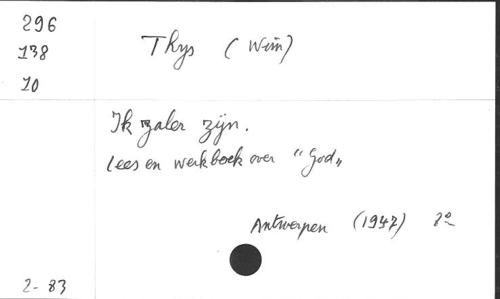 296
138
10
Thys (Wim)
Ik zaler zijn.
Lees en werkboek over "God"
Antwerpen (1947) 8º
2-83